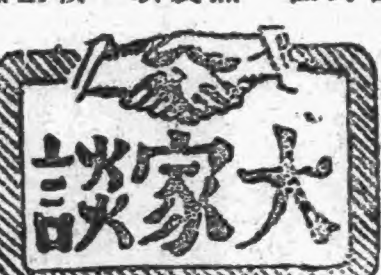 大家談